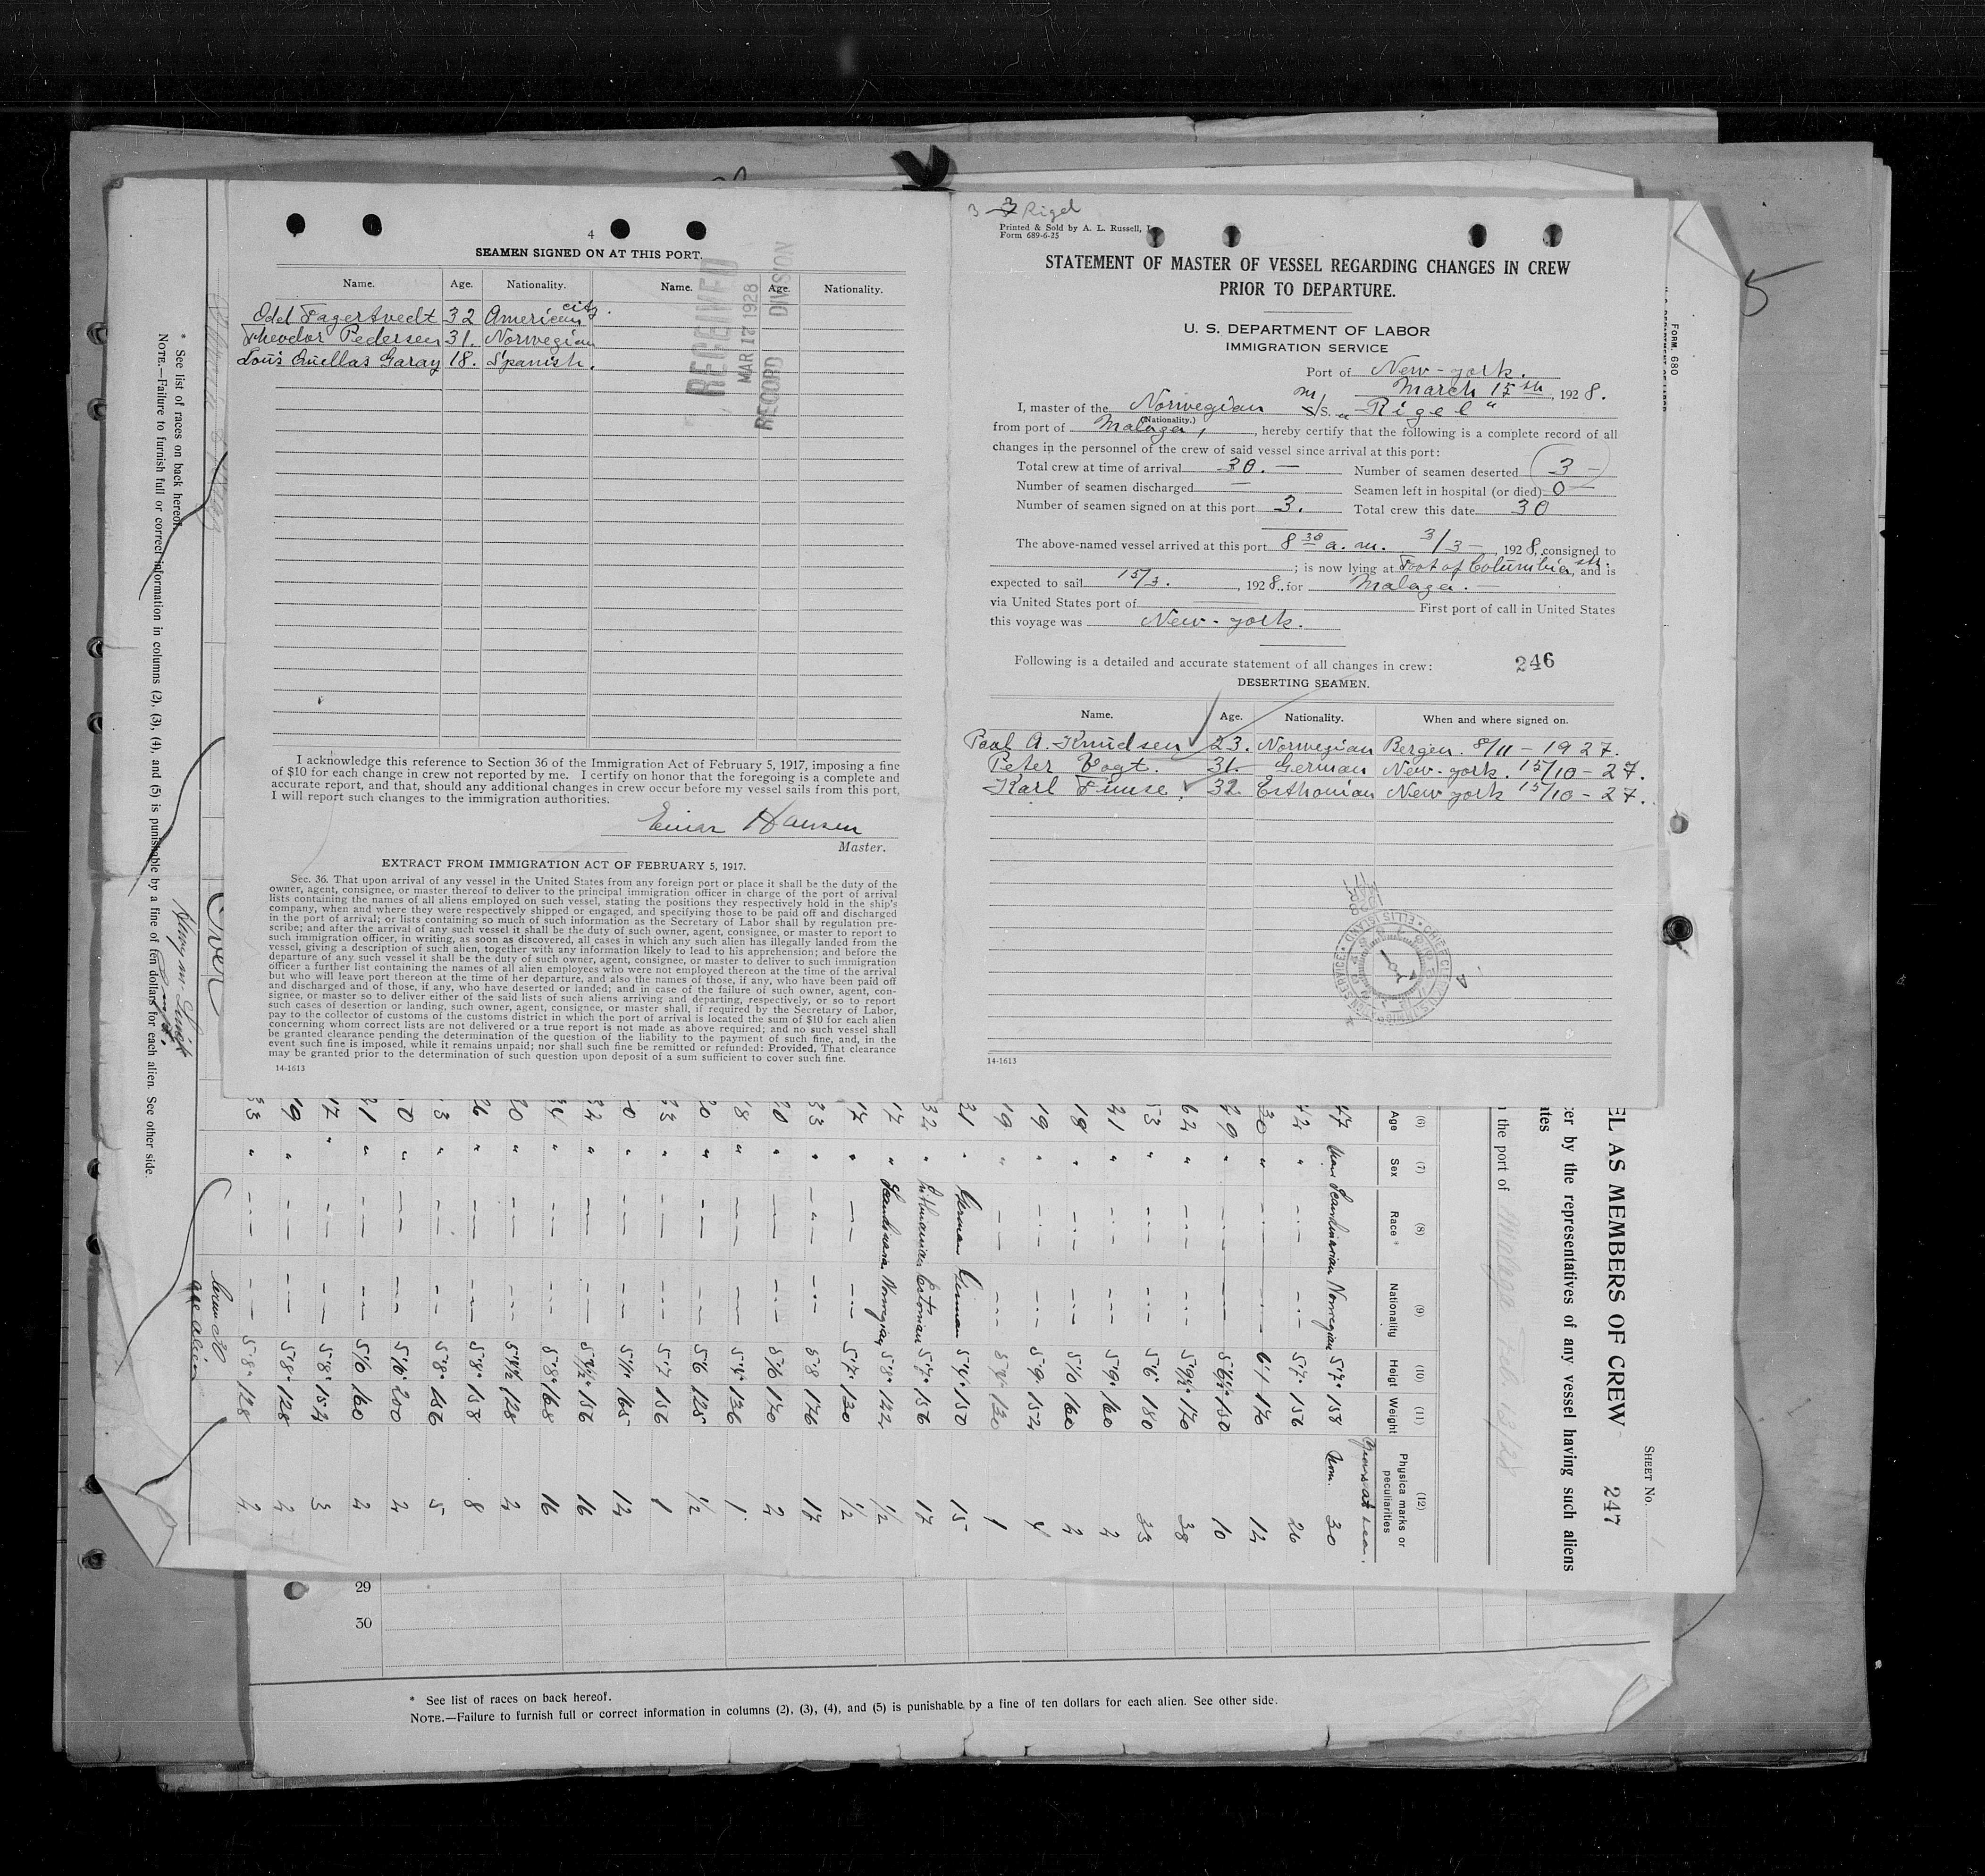 4
SEAMEN SIGNED ON AT THIS PORT.
Name. Age. Nationality. Name. Age. Nationality.
Odd Fagertvedt 32 American citz.
Thevdor Pedersen 31. Norwegian
Louis Cuellas Garay 18. Spanish.
RECEIVED
MAR 17 1928
RECORD DIVISION
I acknowledge this reference to Section 36 of the Immigration Act of February 5, 1917, imposing a fine
of $10 for each change in crew not reported by me. I certify on honor that the foregoing is a complete and
accurate report, and that, should any additional changes in crew occur before my vessel sails from this port,
I will report such changes to the immigration authorities.
Einar Hansen
Master.
EXTRACT FROM IMMIGRATION ACT OF FEBRUARY 5, 1917.
Sec. 36. That upon arrival of any vessel in the United States from any foreign port or place it shall be the duty of the
owner, agent, consignee, or master thereof to deliver to the principal immigration officer in charge of the port of arrival
lists containing the names of all aliens employed on such vessel, stating the positions they respectively hold in the ship's
company, when and where they were respectively shipped or engaged, and specifying those to be paid off and discharged
in the port of arrival; or lists containing so much of such information as the Secretary of Labor shall by regulation pre-
scribe; and after the arrival of any such vessel it shall be the duty of such owner, agent, consignee, or master to report to
such immigration officer, in writing, as soon as discovered, all cases in which any such alien has illegally landed from the
vessel, giving a description of such alien, together with any information likely to lead to his apprehension; and before the
departure of any such vessel it shall be the duty of such owner, agent, consignee, or master to deliver to such immigration
officer a further list containing the names of all alien employees who were not employed thereon at the time of the arrival
but who will leave port thereon at the time of her departure, and also the names of those, if any, who have been paid off
and discharged and of those, if any, who have deserted or landed; and in case of the failure of such owner, agent, con-
signee, or master so to deliver either of the said lists of such aliens arriving and departing, respectively, or so to report
such cases of desertion or landing, such owner, agent, consignee, or master shall, if required by the Secretary of Labor,
pay to the collector of customs of the customs district in which the port of arrival is located the sum of $10 for each alien
concerning whom correct lists are not delivered or a true report is not made as above required; and no such vessel shall
be granted clearance pending the determination of the question of the liability to the payment of such fine, and, in the
event such fine is imposed, while it remains unpaid; nor shall such fine be remitted or refunded: Provided, That clearance
may be granted prior to the determination of such question upon deposit of a sum sufficient to cover such fine.
14-1613
3 Rigel
Printed & Sold by A. L. Russell,
Form 689-6-25
STATEMENT OF MASTER OF VESSEL REGARDING CHANGES IN CREW
PRIOR TO DEPARTURE.
U. S. DEPARTMENT OF LABOR
IMMIGRATION SERVICE
Port of New-york.
March 15th, 1928.
I, master of the Norwegian m/S. "Rigel"
(Nationality.)
from port of Malaga, , hereby certify that the following is a complete record of all
changes in the personnel of the crew of said vessel since arrival at this port:
Total crew at time of arrival 30. — Number of seamen deserted 3 —
Number of seamen discharged — Seamen left in hospital (or died) 0 —
Number of seamen signed on at this port 3. Total crew this date 30
The above-named vessel arrived at this port 8 30 a. m. 3/3 —, 1928, consigned to
; is now lying at Foot of Columbia str., and is
expected to sail 15/3., 1928., for Malaga. —
via United States port of First port of call in United States
this voyage was New-york.
Following is a detailed and accurate statement of all changes in crew: 246
DESERTING SEAMEN.
Name. Age. Nationality. When and where signed on.
Paal A. Knudsen 23. Norwegian Bergen. 8/11 - 1927.
Peter Vogt. 31. German New-york. 15/10 - 27.
Karl Fiuse, 32. Esthonian New york 15/10 - 27.
14-1613
5
FORM. 680
EL AS MEMBERS OF CREW 247
SHEET No.
cer by the representatives of any vessel having such aliens
ates
the port of Malaga Feb. 13/28
(6) (7) (8) (9) (10) (11) (12)
Age Sex Race * Nationality Heigt Weight Physica marks or peculiarities
Years at sea.
47 Scandinavian Norwegian 5'7" 158 30
42 " 5'7" 156 26
30 " 6'1 170 12
29 " 150 10
62 " 170 38
53 " 5'6" 180 33
21 " 5'9" 160 2
18 " 5'10 160 2
19 " 5'9" 152 4
19 " 130 1
31 " German German 150 15
32 " Lithuanian Estonian 5'7" 156 17
17 " Scandinavia Norwegian 5'8" 122 1/2
17 " 5'7" 130 1/2
33 " 5'8 176 17
20 " 5'10 170 2
18 " 136 1
20 " 5'6 125 1/2
33 " 5'7 156 1
20 " 5'11" 165 12
156 16
5'8" 168 16
20 " 128 2
26 " 5'8" 158 8
5'8" 156 5
5'10" 200 2
21 " 5'10 160 2
17 " 5'8" 152 3
19 " 5'8" 128 2
33 " 5'8" 128 2
Crew 30
are aliens
* See list of races on back hereof.
NOTE.—Failure to furnish full or correct information in columns (2), (3), (4), and (5) is punishable by a fine of ten dollars for each alien. See other side.
29
30
* See list of races on back hereof.
NOTE.—Failure to furnish full or correct information in columns (2), (3), (4), and (5) is punishable by a fine of ten dollars for each alien. See other side.